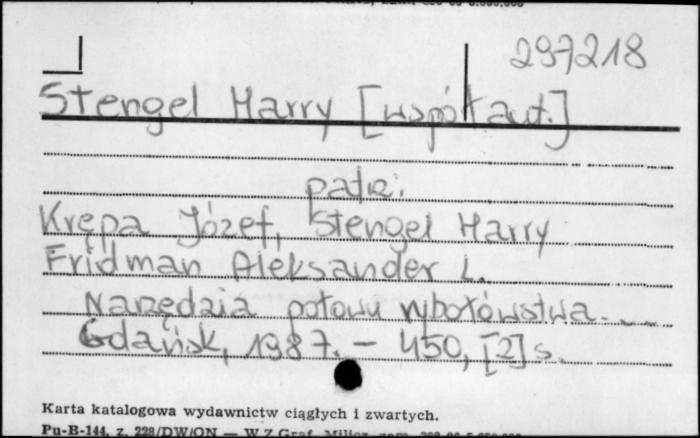 297218
Stengel Harry [współaut.]
patrz:
Krępa Józef, Stengel Harry
Fridman Aleksander L.
Narzędzia połowu rybołówstwa.
Gdańsk, 1987. – 450, [2] s.
Karta katalogowa wydawnictw ciągłych i zwartych.
Pu-B-144, z. 228/DW/ON — WZGraf. Milicz, zam.